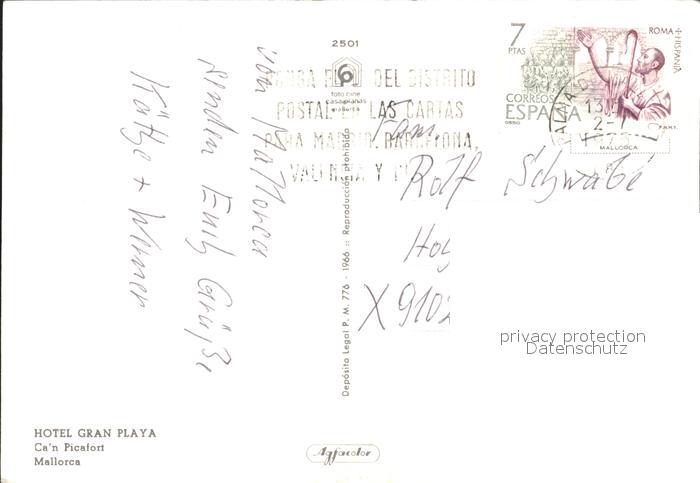 2501
foto cine
casa planas
mallorca
PONGA EL DEL DISTRITO
POSTAL EN LAS CARTAS
PARA MADRID, BARCELONA,
VALENCIA Y
7
PTAS
ROMA + HISPANIA
CORREOS
ESPAÑA
PALMA DE
MALLORCA
F.N.M.T.
von Mallorca
senden Euch Grüße,
Kätze + Werner
Fam.
Rolf Schwabe
X 9102
Depósito Legal P. M. 776 - 1966 :: Reproducción prohibida
privacy protection
Datenschutz
HOTEL GRAN PLAYA
Ca'n Picafort
Mallorca
Agfacolor